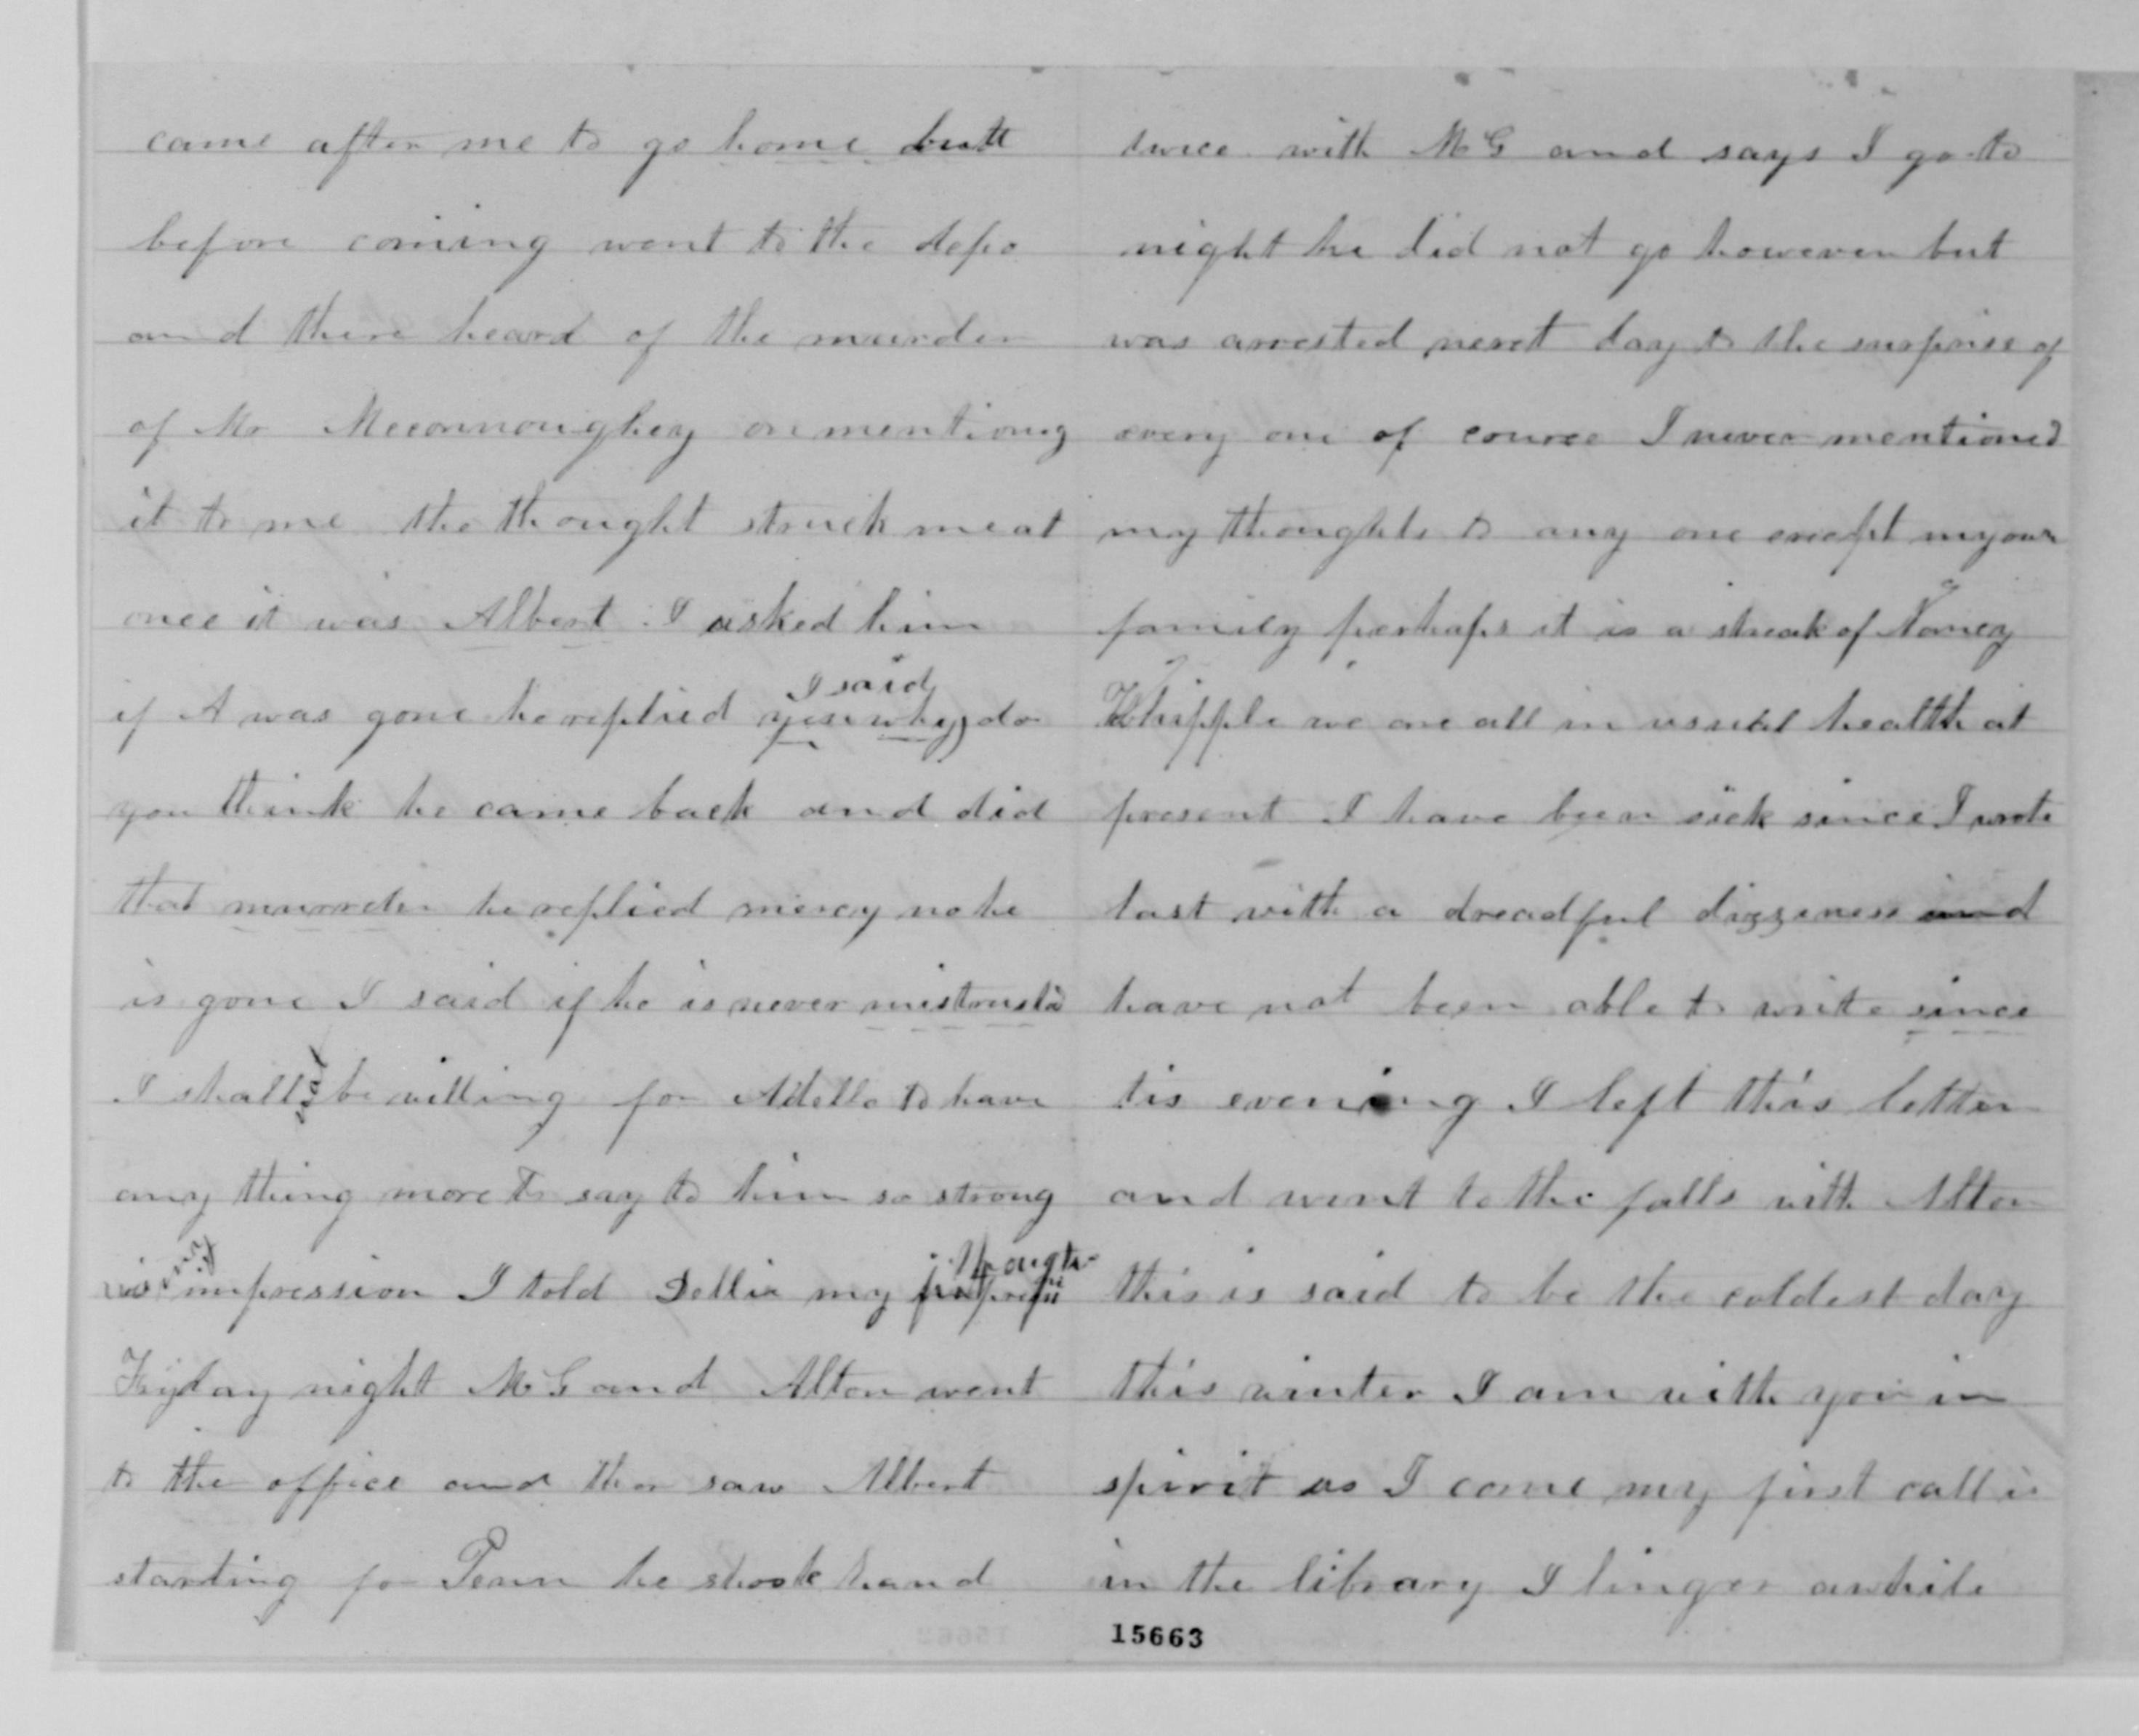 came after me to go home butt
before coming went to the depo
and there heard of the murder
of Mr Meconnoughey on mentiong
it to me the thought struck me at
once it was Albert I asked him
if A was gone he replied yes I said why do
you think he came back and did
that murrder he replied mercy no he
is gone I said if he is never mistrusted
I shall not be willing for Adella to have
any thing more to say to him so strong
is my impression I told Dellie my thoughts
Fryday night McG and Alton went
to the office and ther saw Albert
starting for Penn he shook hand
twice with McG and says I go to
night he did not go however but
was arrested next day to the surprise of
every one of cource I never mentioned
my thoughts to any one except my own
family perhaps it is a streak of Nancy
Whipple we are all in usual health at
present I have been sick since I wrote
last with a dreadful dizziness and
have not been able to write since
tis evening I left this letter
and went to the falls with Alton
this is said to be the coldest day
this winter I am with you in
spirit as I come my first call is
in the library I linger awhile
15663